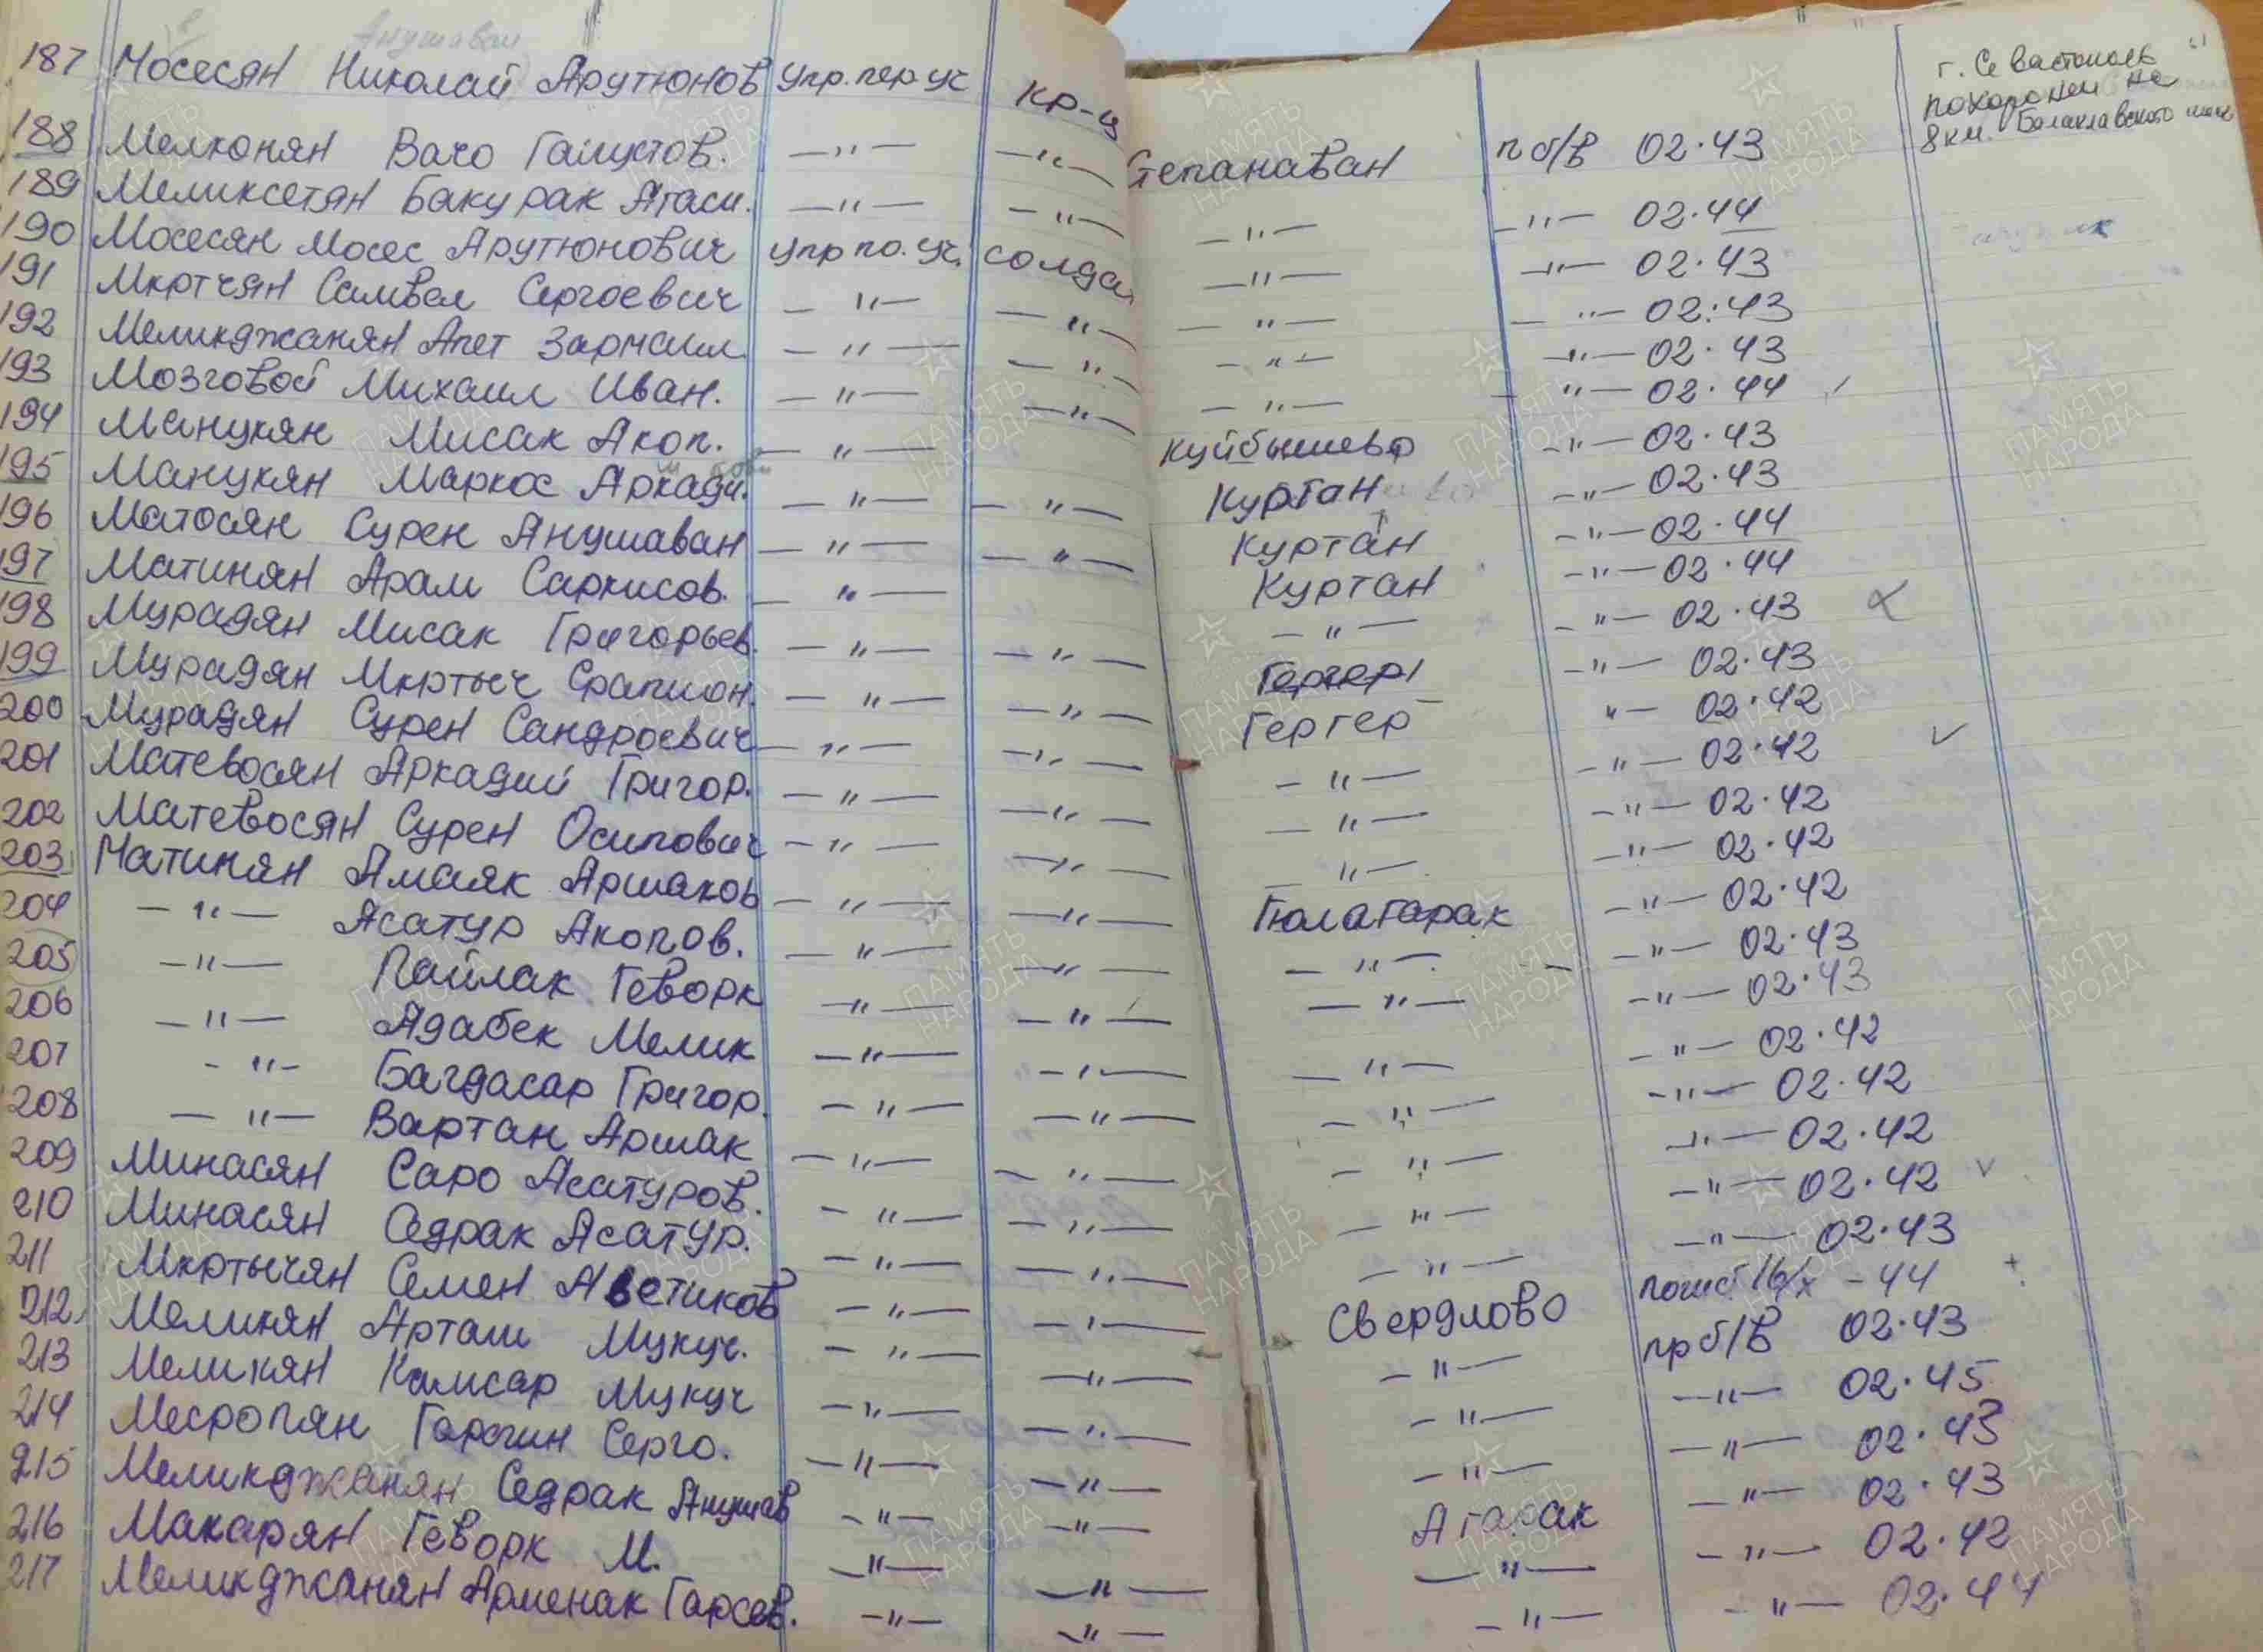 Анушаван
187 Мосесян Николай Арутюнов упр. пер. уч кр-ц Степанаван п б/в 02.43 г. Севастополь
похоронен на
8 км. Балаклавского
188 Мелконян Вачо Галустов. —"— —"— —"— —"— 02.44
189 Меликсетян Бакурак Агаси. —"— —"— —"— —"— 02.43
190 Мосесян Мосес Арутюнович упр по. уч. солда —"— —"— 02.43
191 Мкртчян Самвел Сергоевич —"— —"— —"— —"— 02.43
192 Меликджанян Апет Зармаил —"— —"— —"— —"— 02.44
193 Мозговой Михаил Иван. —"— —"— Куйбышево —"— 02.43
194 Манукян Мисак Акоп. —"— Куртан —"— 02.43
195 Манукян Маркос Аркади. —"— —"— Куртан —"— 02.44
196 Матосян Сурен Анушаван —"— —"— Куртан —"— 02.44
197 Матинян Арам Саркисов. —"— —"— —"— 02.43
198 Мурадян Мисак Григорьев. —"— —"— Гергер —"— 02.43
199 Мурадян Мкртыч Срапион. —"— —"— Гергер "— 02.42
200 Мурадян Сурен Сандроевич —"— —"— —"— —"— 02.42
201 Матевосян Аркадий Григор. —"— —"— —"— —"— 02.42
202 Матевосян Сурен Осипович —"— —"— —"— —"— 02.42
203 Матинян Амаяк Аршаков —"— —"— Гюлагарак —"— 02.42
204 —"— Асатур Акопов. —"— —"— —"— —"— 02.43
205 —"— Пайлак Геворк —"— —"— —"— —"— 02.43
206 —"— Адабек Мелик —"— —"— —"— —"— 02.42
207 —"— Багдасар Григор. —"— —"— —"— —"— 02.42
208 —"— Вартан Аршак —"— —"— —"— —"— 02.42
209 Минасян Саро Асатуров. —"— —"— —"— —"— 02.42
210 Минасян Седрак Асатур. —"— —"— —"— —"— 02.43
211 Мкртычян Семен Аветиков —"— —"— Свердлово погиб 16/х - 44
212 Меликян Арташ Мукуч. —"— —"— —"— пр б/в 02.43
213 Меликян Камсар Мукуч —"— —"— —"— —"— 02.45
214 Месропян Гарегин Серго. —"— —"— —"— —"— 02.43
215 Меликджанян Седрак Анушав —"— —"— Агарак —"— 02.43
216 Макарян Геворк М. —"— —"— —"— —"— 02.42
217 Меликджанян Арменак Гарсев. —"— —"— —"— —"— 02.44
ПАМЯТЬ НАРОДА